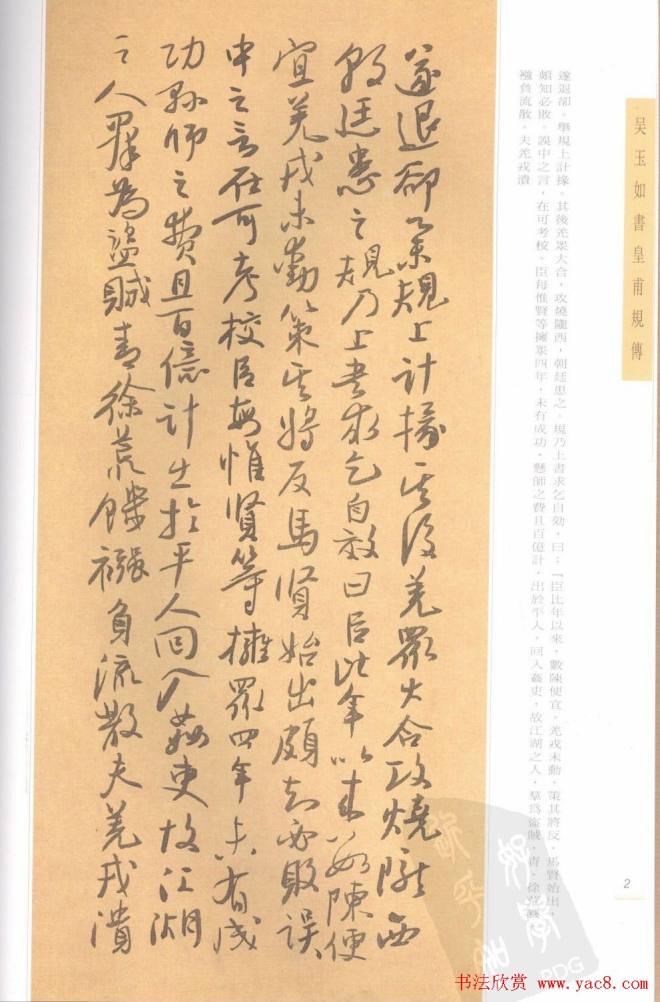 吴玉如書皇甫規傳
遂退卻。舉規上計掾。其後羌眾大合，攻燒隴西，朝廷患之。規乃上書求乞自効，曰：「臣比年以來，數陳便宜。羌戎未動，策其將反，馬賢始出，
頗知必敗。誤中之言，在可考校。臣每惟賢等擁眾四年，未有成功，懸師之費且百億計，出於平人，回入姦吏。故江湖之人，羣為盜賊，青、徐荒饑，
襁負流散。夫羌戎潰
遂退卻舉規上計掾其後羌眾大合攻燒隴西
朝廷患之規乃上書求乞自效曰臣比年以來數陳便
宜羌戎未動策其將反馬賢始出頗知必敗誤
中之言在可考校臣每惟賢等擁眾四年未有成
功懸師之費且百億計出於平人回入姦吏故江湖
之人羣為盜賊青徐荒饑襁負流散夫羌戎潰
2
PDG
书法欣赏 www.yac8.com